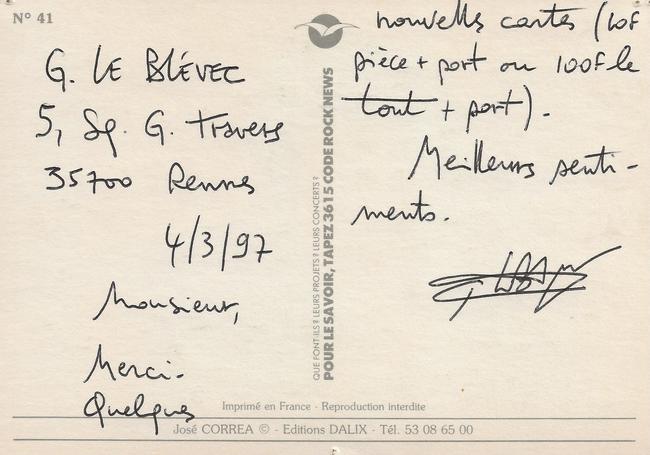 N° 41
G. LE BLÉVEC
5, Sq. G. Travers
35700 Rennes
4/3/97
Monsieur,
Merci.
Quelques
nouvelles cartes (10F
pièce + port ou 100F le
tout + port).
Meilleurs senti-
ments.
QUE FONT-ILS? LEURS PROJETS? LEURS CONCERTS?
POUR LE SAVOIR, TAPEZ 3615 CODE ROCK NEWS
Imprimé en France - Reproduction interdite
José CORREA © - Editions DALIX - Tél. 53 08 65 00